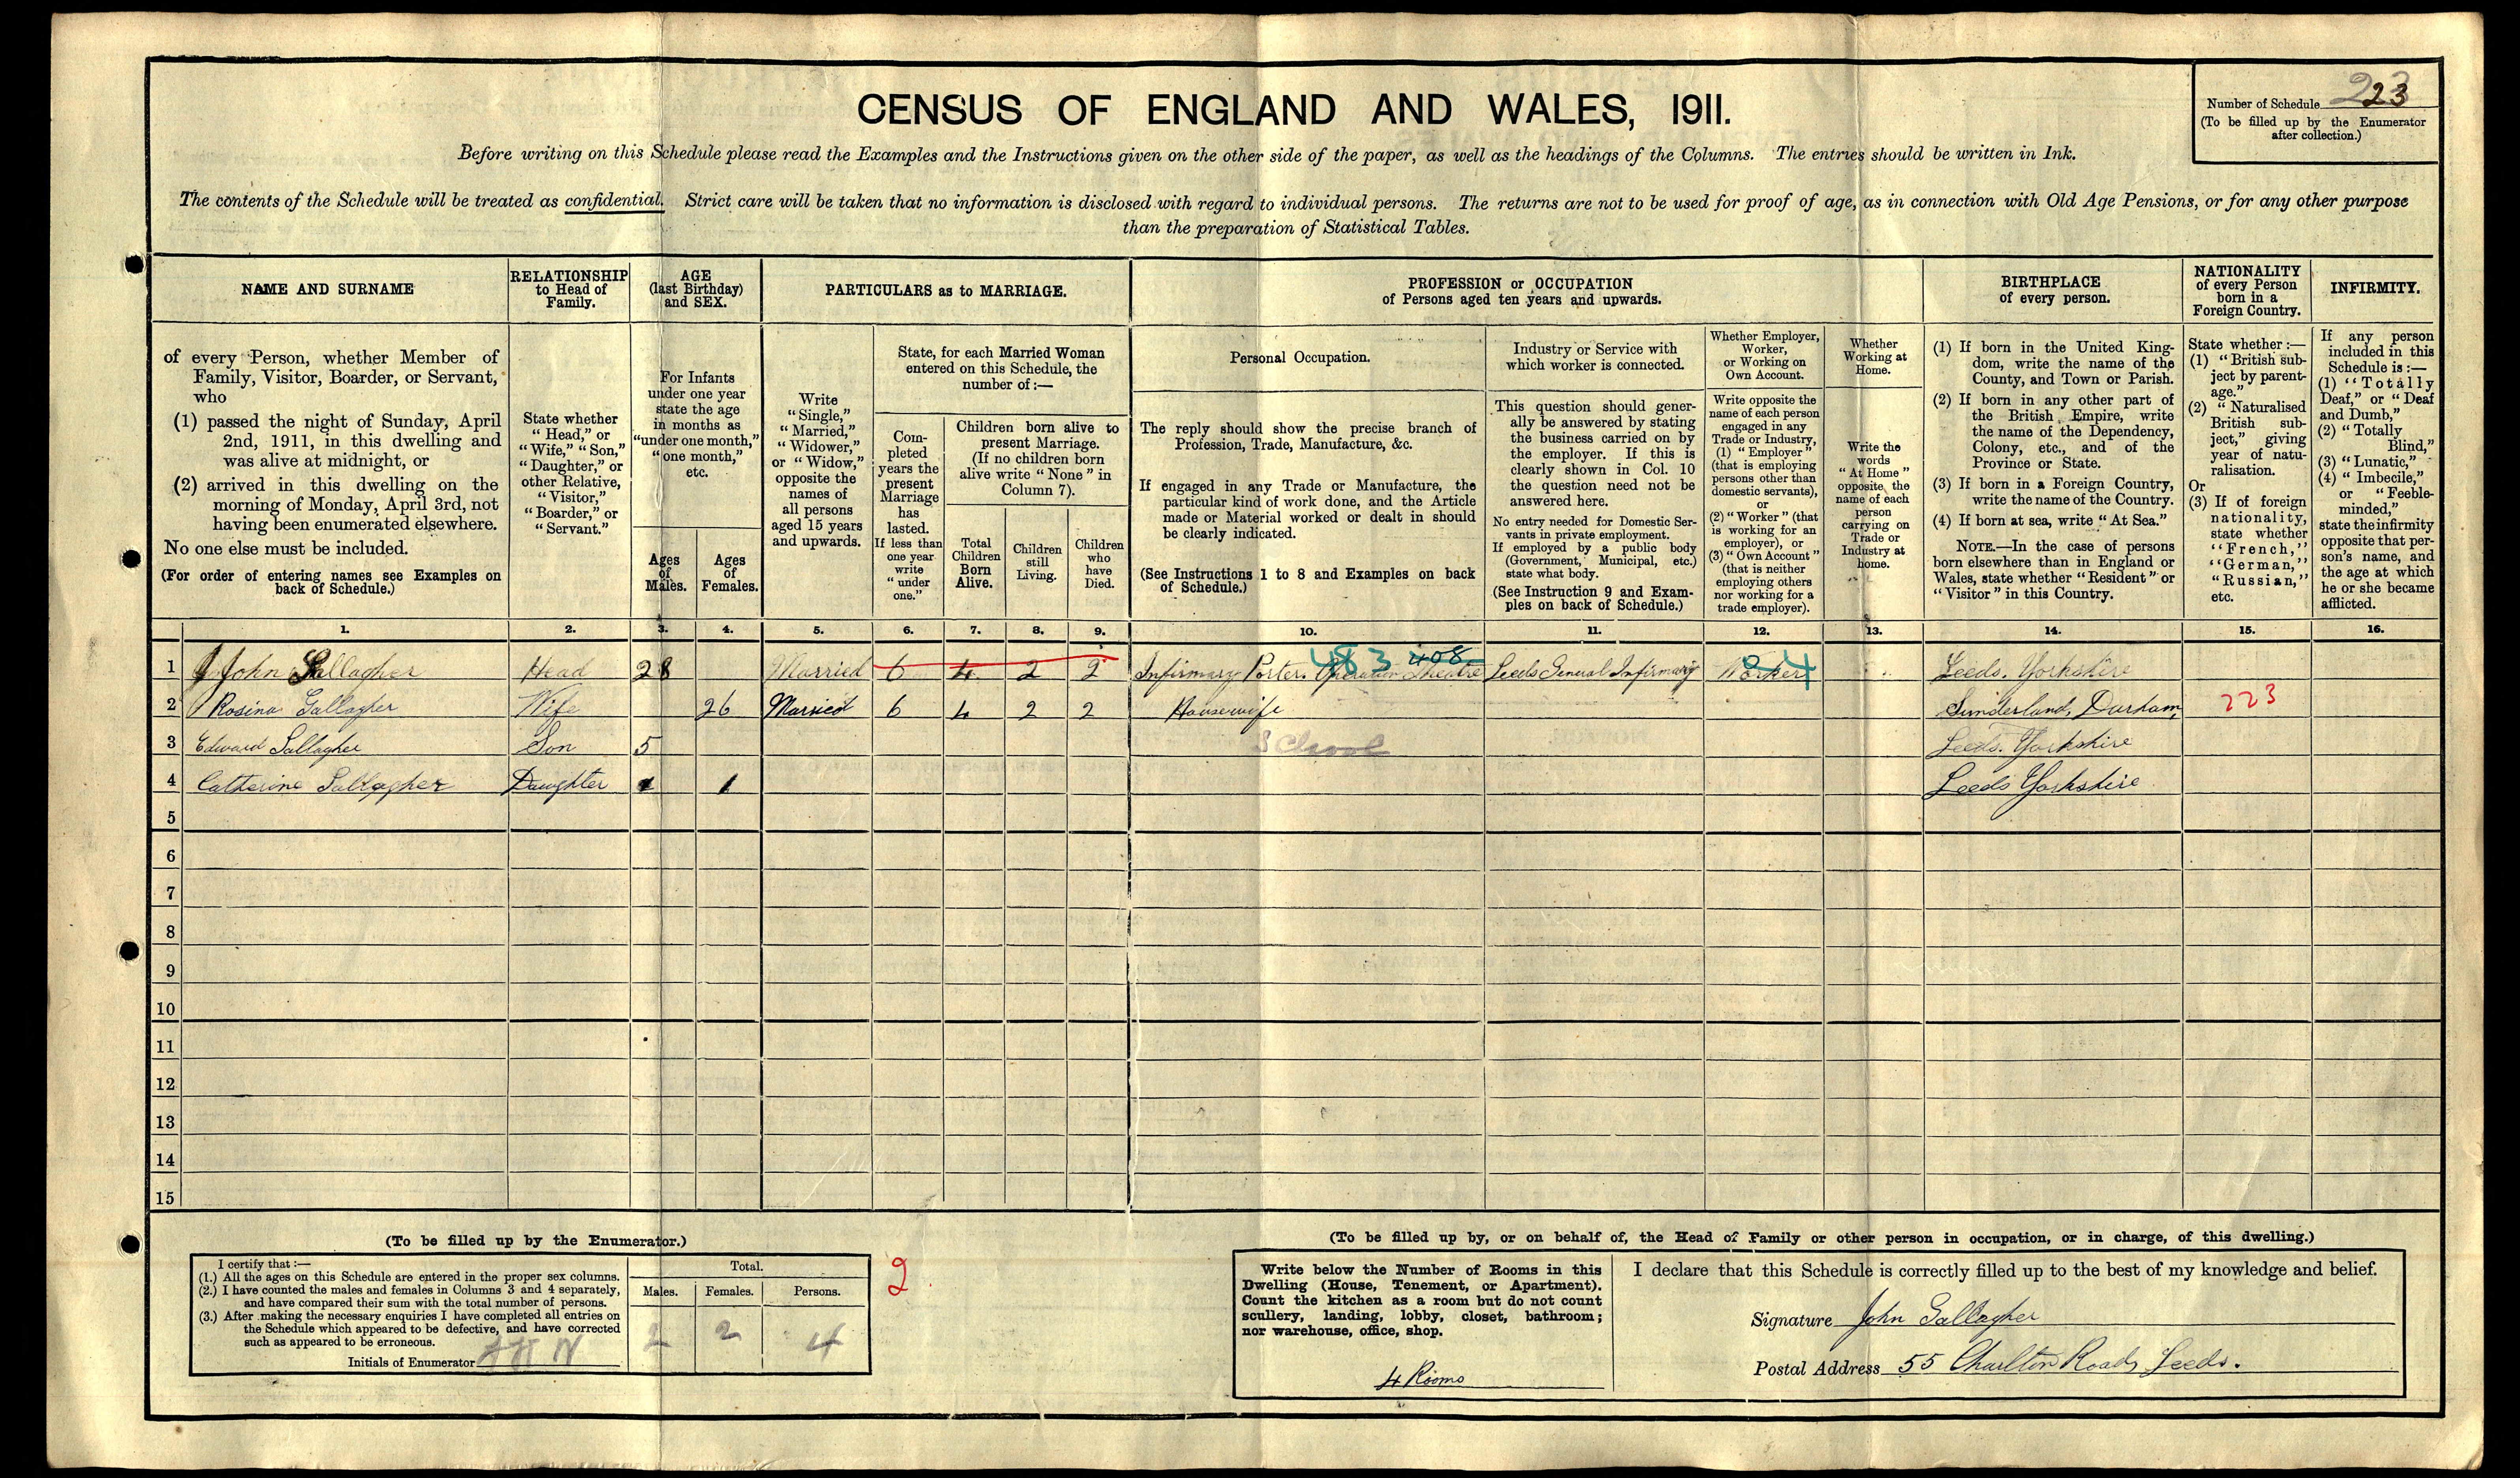 CENSUS OF ENGLAND AND WALES, 1911.
Number of Schedule 223
(To be filled up by the Enumerator
after collection.)
Before writing on this Schedule please read the Examples and the Instructions given on the other side of the paper, as well as the headings of the Columns. The entries should be written in Ink.
The contents of the Schedule will be treated as confidential. Strict care will be taken that no information is disclosed with regard to individual persons. The returns are not to be used for proof of age, as in connection with Old Age Pensions, or for any other purpose
than the preparation of Statistical Tables.
NAME AND SURNAME
of every Person, whether Member of
Family, Visitor, Boarder, or Servant,
who
(1) passed the night of Sunday, April
2nd, 1911, in this dwelling and
was alive at midnight, or
(2) arrived in this dwelling on the
morning of Monday, April 3rd, not
having been enumerated elsewhere.
No one else must be included.
(For order of entering names see Examples on
back of Schedule.)
RELATIONSHIP
to Head of
Family.
State whether
"Head," or
"Wife," "Son,"
"Daughter," or
other Relative,
"Visitor,"
"Boarder," or
"Servant."
AGE
(last Birthday)
and SEX.
For Infants
under one year
state the age
in months as
"under one month,"
"one month,"
etc.
Ages
of
Males.
Ages
of
Females.
PARTICULARS as to MARRIAGE.
Write
"Single,"
"Married,"
"Widower,"
or "Widow,"
opposite the
names of
all persons
aged 15 years
and upwards.
State, for each Married Woman
entered on this Schedule, the
number of:—
Com-
pleted
years the
present
Marriage
has
lasted.
If less than
one year
write
"under
one."
Children born alive to
present Marriage.
(If no children born
alive write "None" in
Column 7).
Total
Children
Born
Alive.
Children
still
Living.
Children
who
have
Died.
PROFESSION or OCCUPATION
of Persons aged ten years and upwards.
Personal Occupation.
The reply should show the precise branch of
Profession, Trade, Manufacture, &c.
If engaged in any Trade or Manufacture, the
particular kind of work done, and the Article
made or Material worked or dealt in should
be clearly indicated.
(See Instructions 1 to 8 and Examples on back
of Schedule.)
Industry or Service with
which worker is connected.
This question should gener-
ally be answered by stating
the business carried on by
the employer. If this is
clearly shown in Col. 10
the question need not be
answered here.
No entry needed for Domestic Ser-
vants in private employment.
If employed by a public body
(Government, Municipal, etc.)
state what body.
(See Instruction 9 and Exam-
ples on back of Schedule.)
Whether Employer,
Worker,
or Working on
Own Account.
Write opposite the
name of each person
engaged in any
Trade or Industry,
(1) "Employer"
(that is employing
persons other than
domestic servants),
or
(2) "Worker" (that
is working for an
employer), or
(3) "Own Account"
(that is neither
employing others
nor working for a
trade employer).
Whether
Working at
Home.
Write the
words
"At Home"
opposite the
name of each
person
carrying on
Trade or
Industry at
home.
BIRTHPLACE
of every person.
(1) If born in the United King-
dom, write the name of the
County, and Town or Parish.
(2) If born in any other part of
the British Empire, write
the name of the Dependency,
Colony, etc., and of the
Province or State.
(3) If born in a Foreign Country,
write the name of the Country.
(4) If born at sea, write "At Sea."
NOTE.—In the case of persons
born elsewhere than in England or
Wales, state whether "Resident" or
"Visitor" in this Country.
NATIONALITY
of every Person
born in a
Foreign Country.
State whether:—
(1) "British sub-
ject by parent-
age."
(2) "Naturalised
British sub-
ject," giving
year of natu-
ralisation.
Or
(3) If of foreign
nationality,
state whether
"French,"
"German,"
"Russian,"
etc.
INFIRMITY.
If any person
included in this
Schedule is:—
(1) "Totally
Deaf," or "Deaf
and Dumb,"
(2) "Totally
Blind,"
(3) "Lunatic,"
(4) "Imbecile,"
or "Feeble-
minded,"
state the infirmity
opposite that per-
son's name, and
the age at which
he or she became
afflicted.
1. 2. 3. 4. 5. 6. 7. 8. 9. 10. 11. 12. 13. 14. 15. 16.
483 408
1 John Gallagher Head 28 Married 6 4 2 2 Infirmary Porter. Operation Theatre Leeds General Infirmary Worker 4 Leeds. Yorkshire
2 Rosina Gallagher Wife 26 Married 6 4 2 2 Housewife Sunderland, Durham, 223
3 Edward Gallagher Son 5 School Leeds. Yorkshire
4 Catherine Gallagher Daughter 1 Leeds Yorkshire
5
6
7
8
9
10
11
12
13
14
15
(To be filled up by the Enumerator.)
I certify that:—
(1.) All the ages on this Schedule are entered in the proper sex columns.
(2.) I have counted the males and females in Columns 3 and 4 separately,
and have compared their sum with the total number of persons.
(3.) After making the necessary enquiries I have completed all entries on
the Schedule which appeared to be defective, and have corrected
such as appeared to be erroneous.
Initials of Enumerator
Total.
Males. Females. Persons.
2 2 4
2
(To be filled up by, or on behalf of, the Head of Family or other person in occupation, or in charge, of this dwelling.)
Write below the Number of Rooms in this
Dwelling (House, Tenement, or Apartment).
Count the kitchen as a room but do not count
scullery, landing, lobby, closet, bathroom;
nor warehouse, office, shop.
4 Rooms
I declare that this Schedule is correctly filled up to the best of my knowledge and belief.
Signature John Gallagher
Postal Address 55 Charlton Road, Leeds.